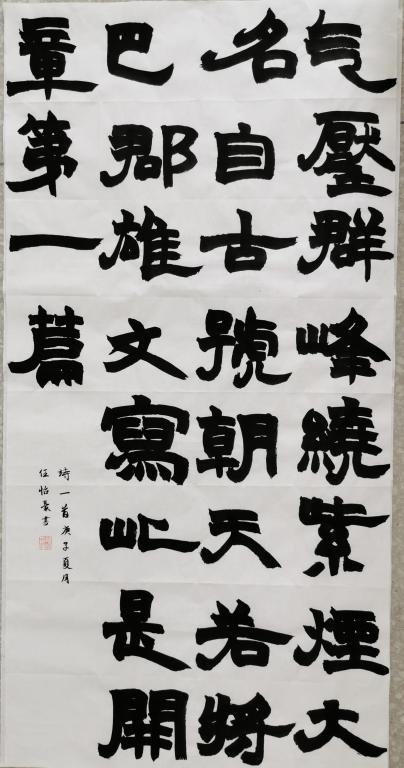 气壓群峰繞紫煙大
名自古號朝天若將
巴郡雄文寫此是開
章第一篇
诗一首庚子夏月
任怡長書